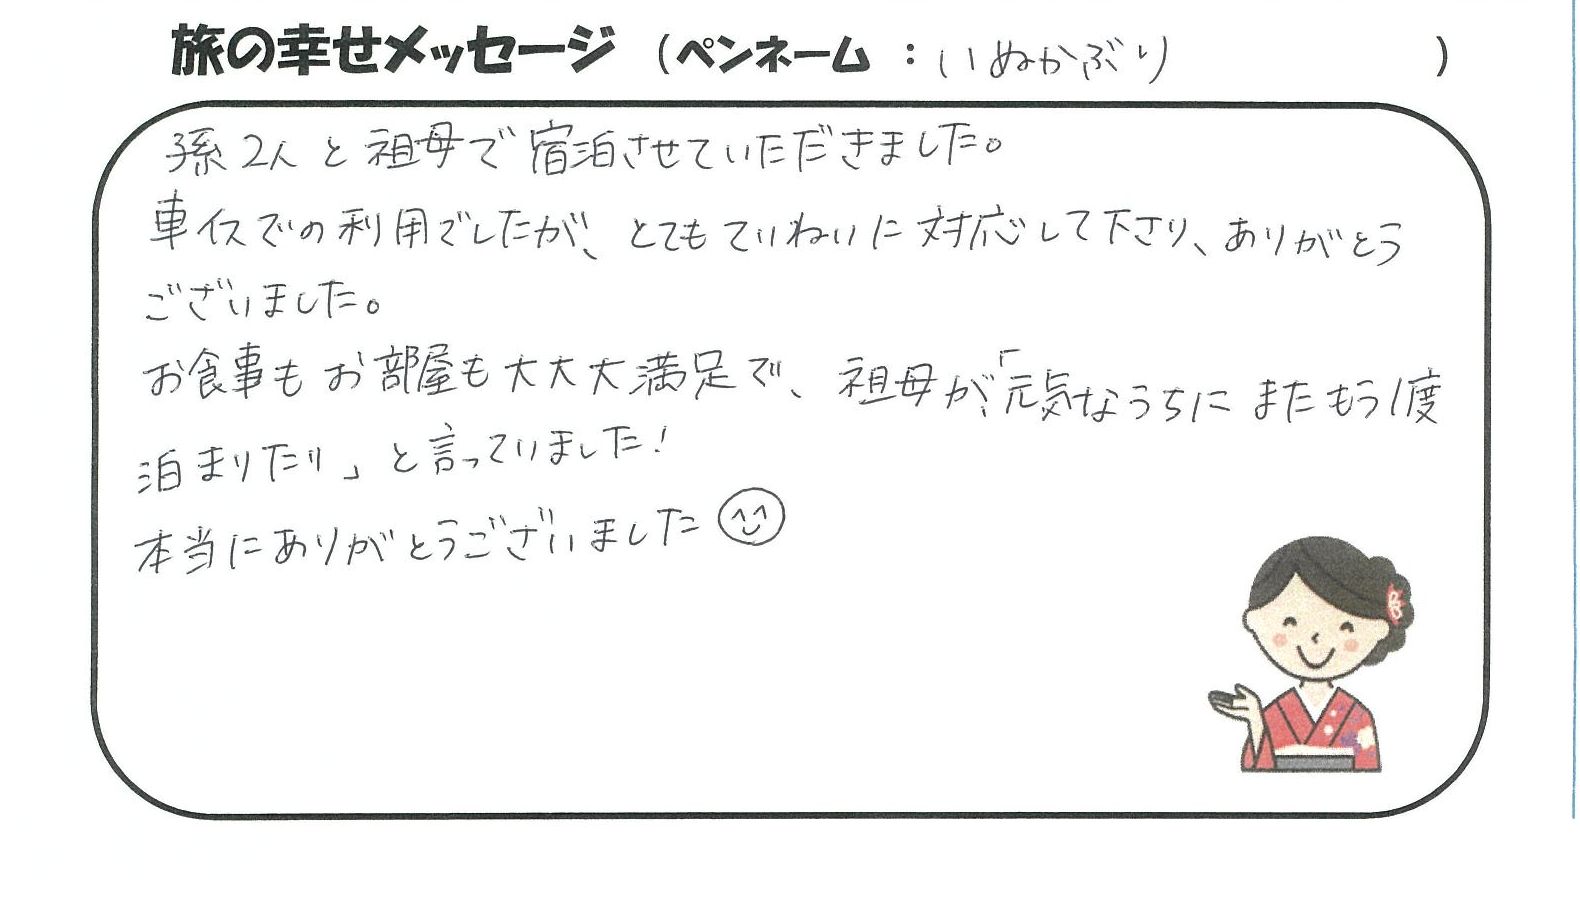 旅の幸せメッセージ (ペンネーム : いぬかぶり )
孫2人と祖母で宿泊させていただきました。
車イスでの利用でしたが、とてもていねいに対応して下さり、ありがとう
ございました。
お食事もお部屋も大大大満足で、祖母が、「元気なうちにまたもう1度
泊まりたい」と言っていました!
本当にありがとうございました